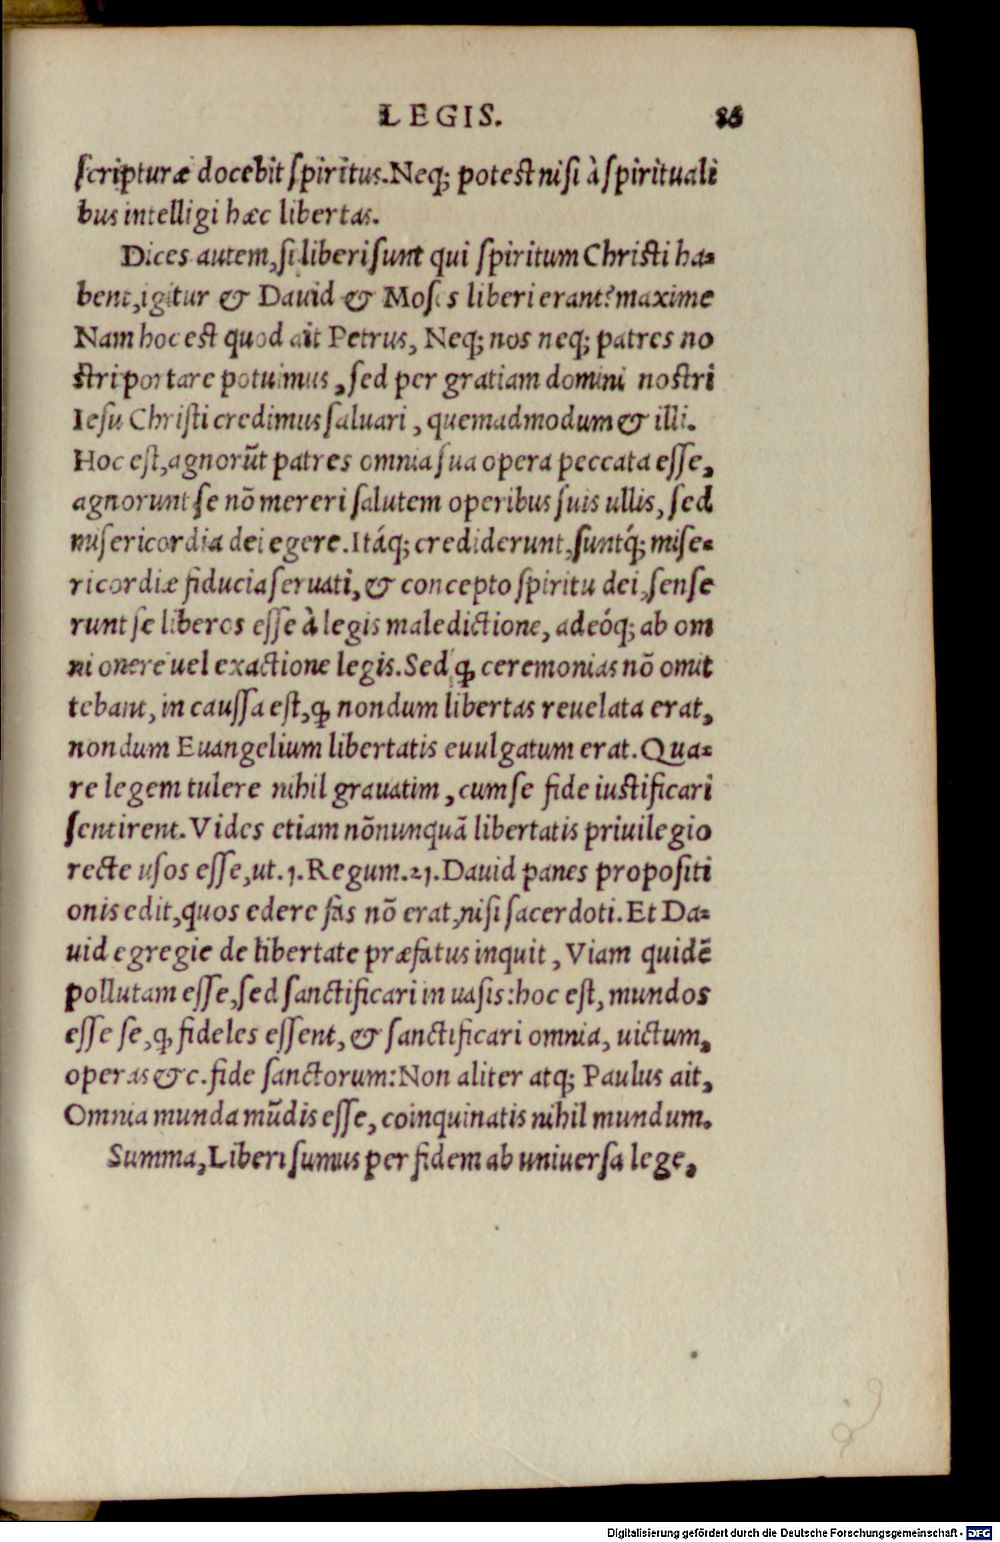 LEGIS. 86
ſcripturæ docebit ſpiritus. Neq; poteſt niſi à ſpirituali
bus intelligi hæc libertas.
Dices autem, ſi liberi ſunt qui ſpiritum Chriſti ha-
bent, igitur & Dauid & Moſes liberi erant? maxime
Nam hoc eſt quod ait Petrus, Neq; nos neq; patres no
ſtri portare potuimus, ſed per gratiam domini noſtri
Ieſu Chriſti credimus ſaluari, quemadmodum & illi.
Hoc eſt, agnorūt patres omnia ſua opera peccata eſſe,
agnorunt ſe nō mereri ſalutem operibus ſuis ullis, ſed
miſericordia dei egere. Itáq; crediderunt, ſuntq́; miſe-
ricordiæ fiducia ſeruati, & concepto ſpiritu dei, ſenſe
runt ſe liberos eſſe à legis maledictione, adeóq; ab om
ni onere uel exactione legis. Sed ꝙ ceremonias nō omit
tebant, in cauſſa eſt, ꝙ nondum libertas reuelata erat,
nondum Euangelium libertatis euulgatum erat. Qua-
re legem tulere nihil grauatim, cum ſe fide iuſtificari
ſentirent. Vides etiam nōnunquā libertatis priuilegio
recte uſos eſſe, ut. 1. Regum. 21. Dauid panes propoſiti
onis edit, quos edere fas nō erat, niſi ſacerdoti. Et Da-
uid egregie de libertate præfatus inquit, Viam quidē
pollutam eſſe, ſed ſanctificari in uaſis: hoc eſt, mundos
eſſe ſe, ꝙ fideles eſſent, & ſanctificari omnia, uictum,
operas &c. fide ſanctorum: Non aliter atq; Paulus ait,
Omnia munda mūdis eſſe, coinquinatis nihil mundum.
Summa, Liberi ſumus per fidem ab uniuerſa lege,
Digitalisierung gefördert durch die Deutsche Forschungsgemeinschaft - DFG